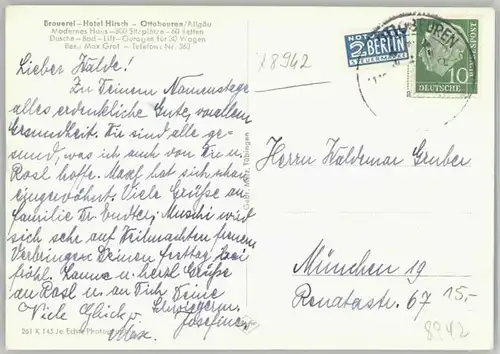 Brauerei - Hotel Hirsch - Ottobeuren/Allgäu
Modernes Haus - 300 Sitzplätze - 60 Betten
Dusche - Bad - Lift - Garagen für 30 Wagen
Bes.: Max Graf - Telefon Nr. 363
x8942
NOTOPFER
2 BERLIN
STEUERMARKE
BEUREN
10
DEUTSCHE
BUNDESPOST
Lieber Walde!
Zu Deinem Namenstage
alles erdenkliche Gute, vor allem
Gesundheit. Wir sind alle ge-
sund, was ich auch von Dir u.
Rosl hoffe. Max hat sich schon
eingewöhnt. Viele Grüße an
Familie Dr. Endter, Muschi wird
sich sehr auf Weihnachten freuen.
Verbringe Deinen Festtag recht
fröhl. Hanna u. herzl. Grüße
an Rosl u. an Dich Deine
Viele Glück u. Schwiegerm.
Josefine.
Max.
Herrn Waldemar Gruber
München 19
Renatastr. 67
15,-
8942
Gebr. Metz, Tübingen
261 K 145 Je Echte Photogr